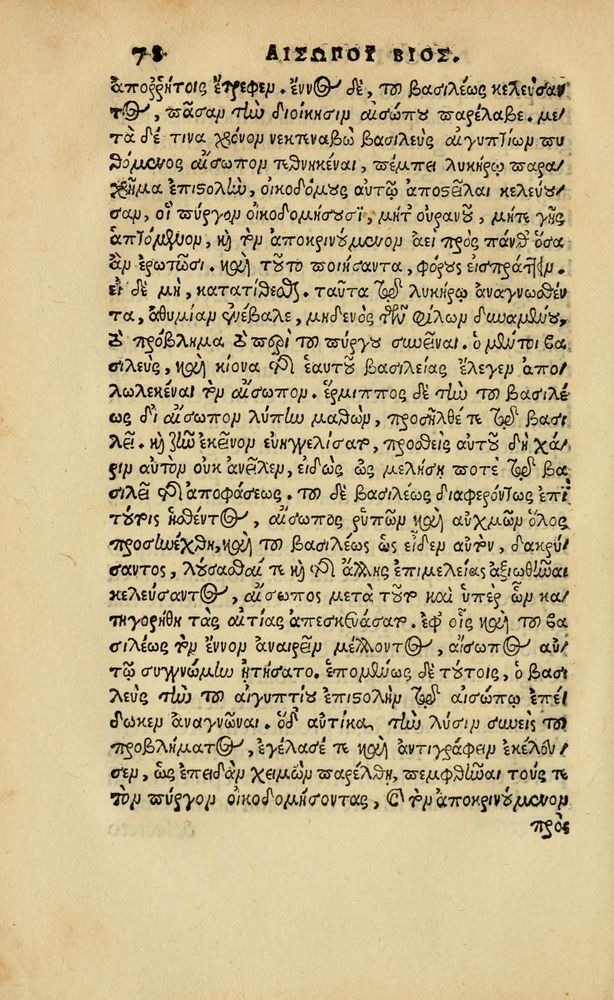 78. ΑΙΣΩΠΟΥ ΒΙΟΣ.
ἀποῤῥήτοις ἔτρεφεν. ἔννος δὲ, τοῦ βασιλέως κελεύσαν
τος, πᾶσαν τὴν διοίκησιν αἰσώπου παρέλαβε. με/
τὰ δέ τινα χρόνον νεκτεναβὼ βασιλεὺς αἰγυπτίων πυ
θόμενος αἴσωπον τεθνηκέναι, πέμπει λυκήρῳ παρα/
χρῆμα ἐπιστολὴν, οἰκοδόμους αὐτῷ ἀποστεῖλαι κελεύου/
σαν, οἳ πύργον οἰκοδομήσουσι, μήτ' οὐρανοῦ, μήτε γῆς
ἁπτόμενον, καὶ τὸν ἀποκρινούμενον ἀεὶ πρὸς πάνθ' ὅσα
ἂν ἐρωτῶσι. καὶ τοῦτο ποιήσαντα, φόρους εἰσπράττειν.
εἰ δὲ μὴ, κατατίθεσθαι. ταῦτα τῷ λυκήρῳ ἀναγνωσθέν
τα, ἀθυμίαν ἐνέβαλε, μηδενὸς τῶν φίλων δυναμένου,
τὸ πρόβλημα τὸ περὶ τοῦ πύργου συνεῖναι. ὁ μέντοι βα
σιλεὺς, καὶ κίονα τῆς ἑαυτοῦ βασιλείας ἔλεγεν ἀπο/
λωλεκέναι τὸν αἴσωπον. ἕρμιππος δὲ τὴν τοῦ βασιλέ/
ως δι' αἴσωπον λύπην μαθὼν, προσῆλθέ τε τῷ βασι/
λεῖ. καὶ ζῆν ἐκεῖνον εὐηγγελίσατο, προσθεὶς αὐτοῦ δὴ χά/
ριν αὐτὸν οὐκ ἀνεῖλεν, εἰδὼς ὡς μελήσῃ ποτὲ τῷ βα
σιλεῖ τῆς ἀποφάσεως. τοῦ δὲ βασιλέως διαφερόντως ἐπὶ
τούτοις ἡσθέντος, αἴσωπος ῥυπῶν καὶ αὐχμῶν ὅλος
προσηνέχθη, καὶ τοῦ βασιλέως ὡς εἶδεν αὐτὸν, δακρύ/
σαντος, λούσασθαί τε καὶ τῆς ἄλλης ἐπιμελείας ἀξιωθῆναι
κελεύσαντος, αἴσωπος μετὰ τοῦτο καὶ ὑπὲρ ὧν κα/
τηγορήθη τὰς αἰτίας ἀπεσκευάσατο. ἐφ' οἷς καὶ τοῦ βα
σιλέως τὸν ἔννον ἀναιρεῖν μέλλοντος, αἴσωπος αὐ/
τῷ συγγνώμην ᾐτήσατο. ἑπομένως δὲ τούτοις, ὁ βασι
λεὺς τὴν τοῦ αἰγυπτίου ἐπιστολὴν τῷ αἰσώπῳ ἐπέ/
δωκεν ἀναγνῶναι. ὁ δ' αὐτίκα τὴν λύσιν συνεὶς τοῦ
προβλήματος, ἐγέλασέ τε καὶ ἀντιγράφειν ἐκέλευ/
σεν, ὡς ἐπειδὰν χειμὼν παρέλθῃ, πεμφθῆναι τούς τε
τὸν πύργον οἰκοδομήσοντας, καὶ τὸν ἀποκρινούμενον
πρὸς